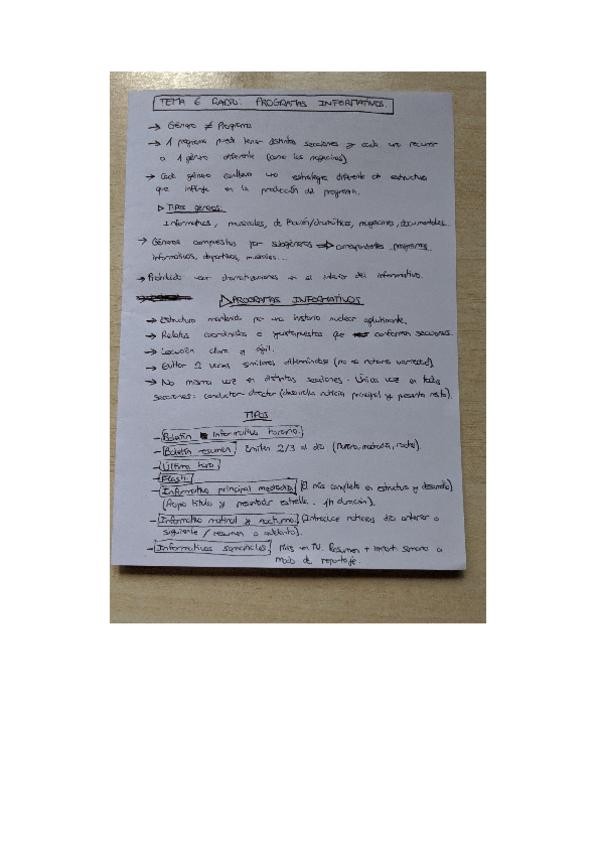 TEMA 6 RADIO: PROGRAMAS INFORMATIVOS.
→ Género ≠ Programa
→ 1 programa puede tener distintas secciones y cada una recurrir
a 1 género diferente (como los magacines).
→ Cada género conlleva una estrategia diferente de estructura
que influye en la producción del programa.
▷ TIPOS géneros:
Informativos, musicales, de ficción/dramáticos, magacines, documentales...
→ Géneros compuestos por subgéneros ⇒ correspondientes programas
informativos, deportivos, musicales...
→ Prohibido usar dramatizaciones en el interior del informativo.
▷ PROGRAMAS INFORMATIVOS
→ Estructura mantenida por una historia nuclear aglutinante.
→ Relatos coordinados o yuxtapuestos que conforman secciones.
→ Locución clara y ágil.
→ Evitar 2 voces similares alternándose (no se notaría variedad)
→ No misma voz en distintas secciones. Única voz en todas
secciones: conductor-director (desarrolla noticia principal y presenta resto).
TIPOS
- Boletín informativo horario.
- Boletín resumen. Emiten 2/3 al día (mañana, mediodía, noche).
- Última hora
- Flash.
- Informativo principal mediodía (El más completo en estructura y desarrollo)
(Propio título y presentador estrella. 1h duración).
- Informativo matinal y nocturno. (Introduce noticias día anterior o
siguiente / resumen o adelanto).
- Informativos semanales. Más en TV. Resumen + semana a
modo de reportaje.